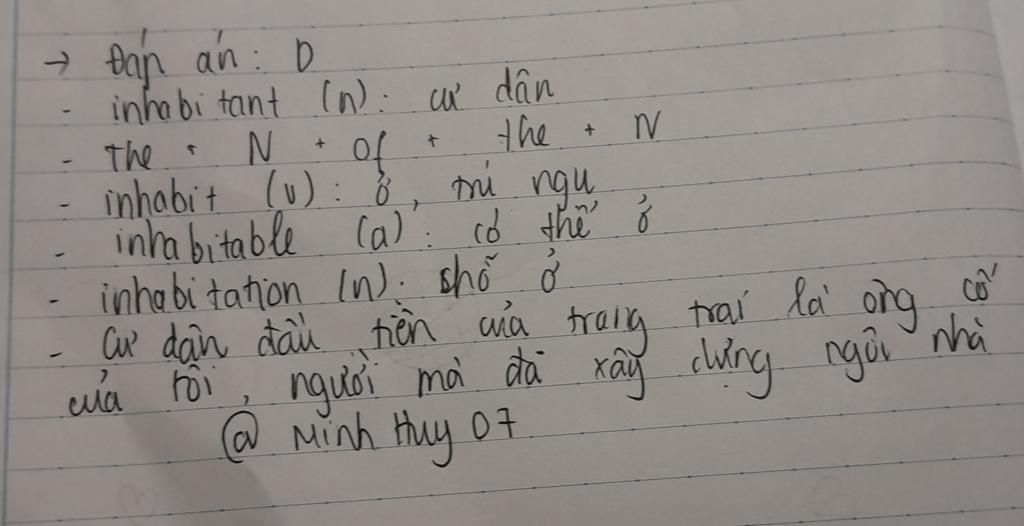 → Đáp án: D
- inhabitant (n): cư dân
- The + N + of + the + N
- inhabit (v): ở, trú ngụ
- inhabitable (a): có thể ở
- inhabitation (n): chỗ ở
- Cư dân đầu tiên của trang trại là ông cố
của tôi, người mà đã xây dựng ngôi nhà
@ Minh Huy 07